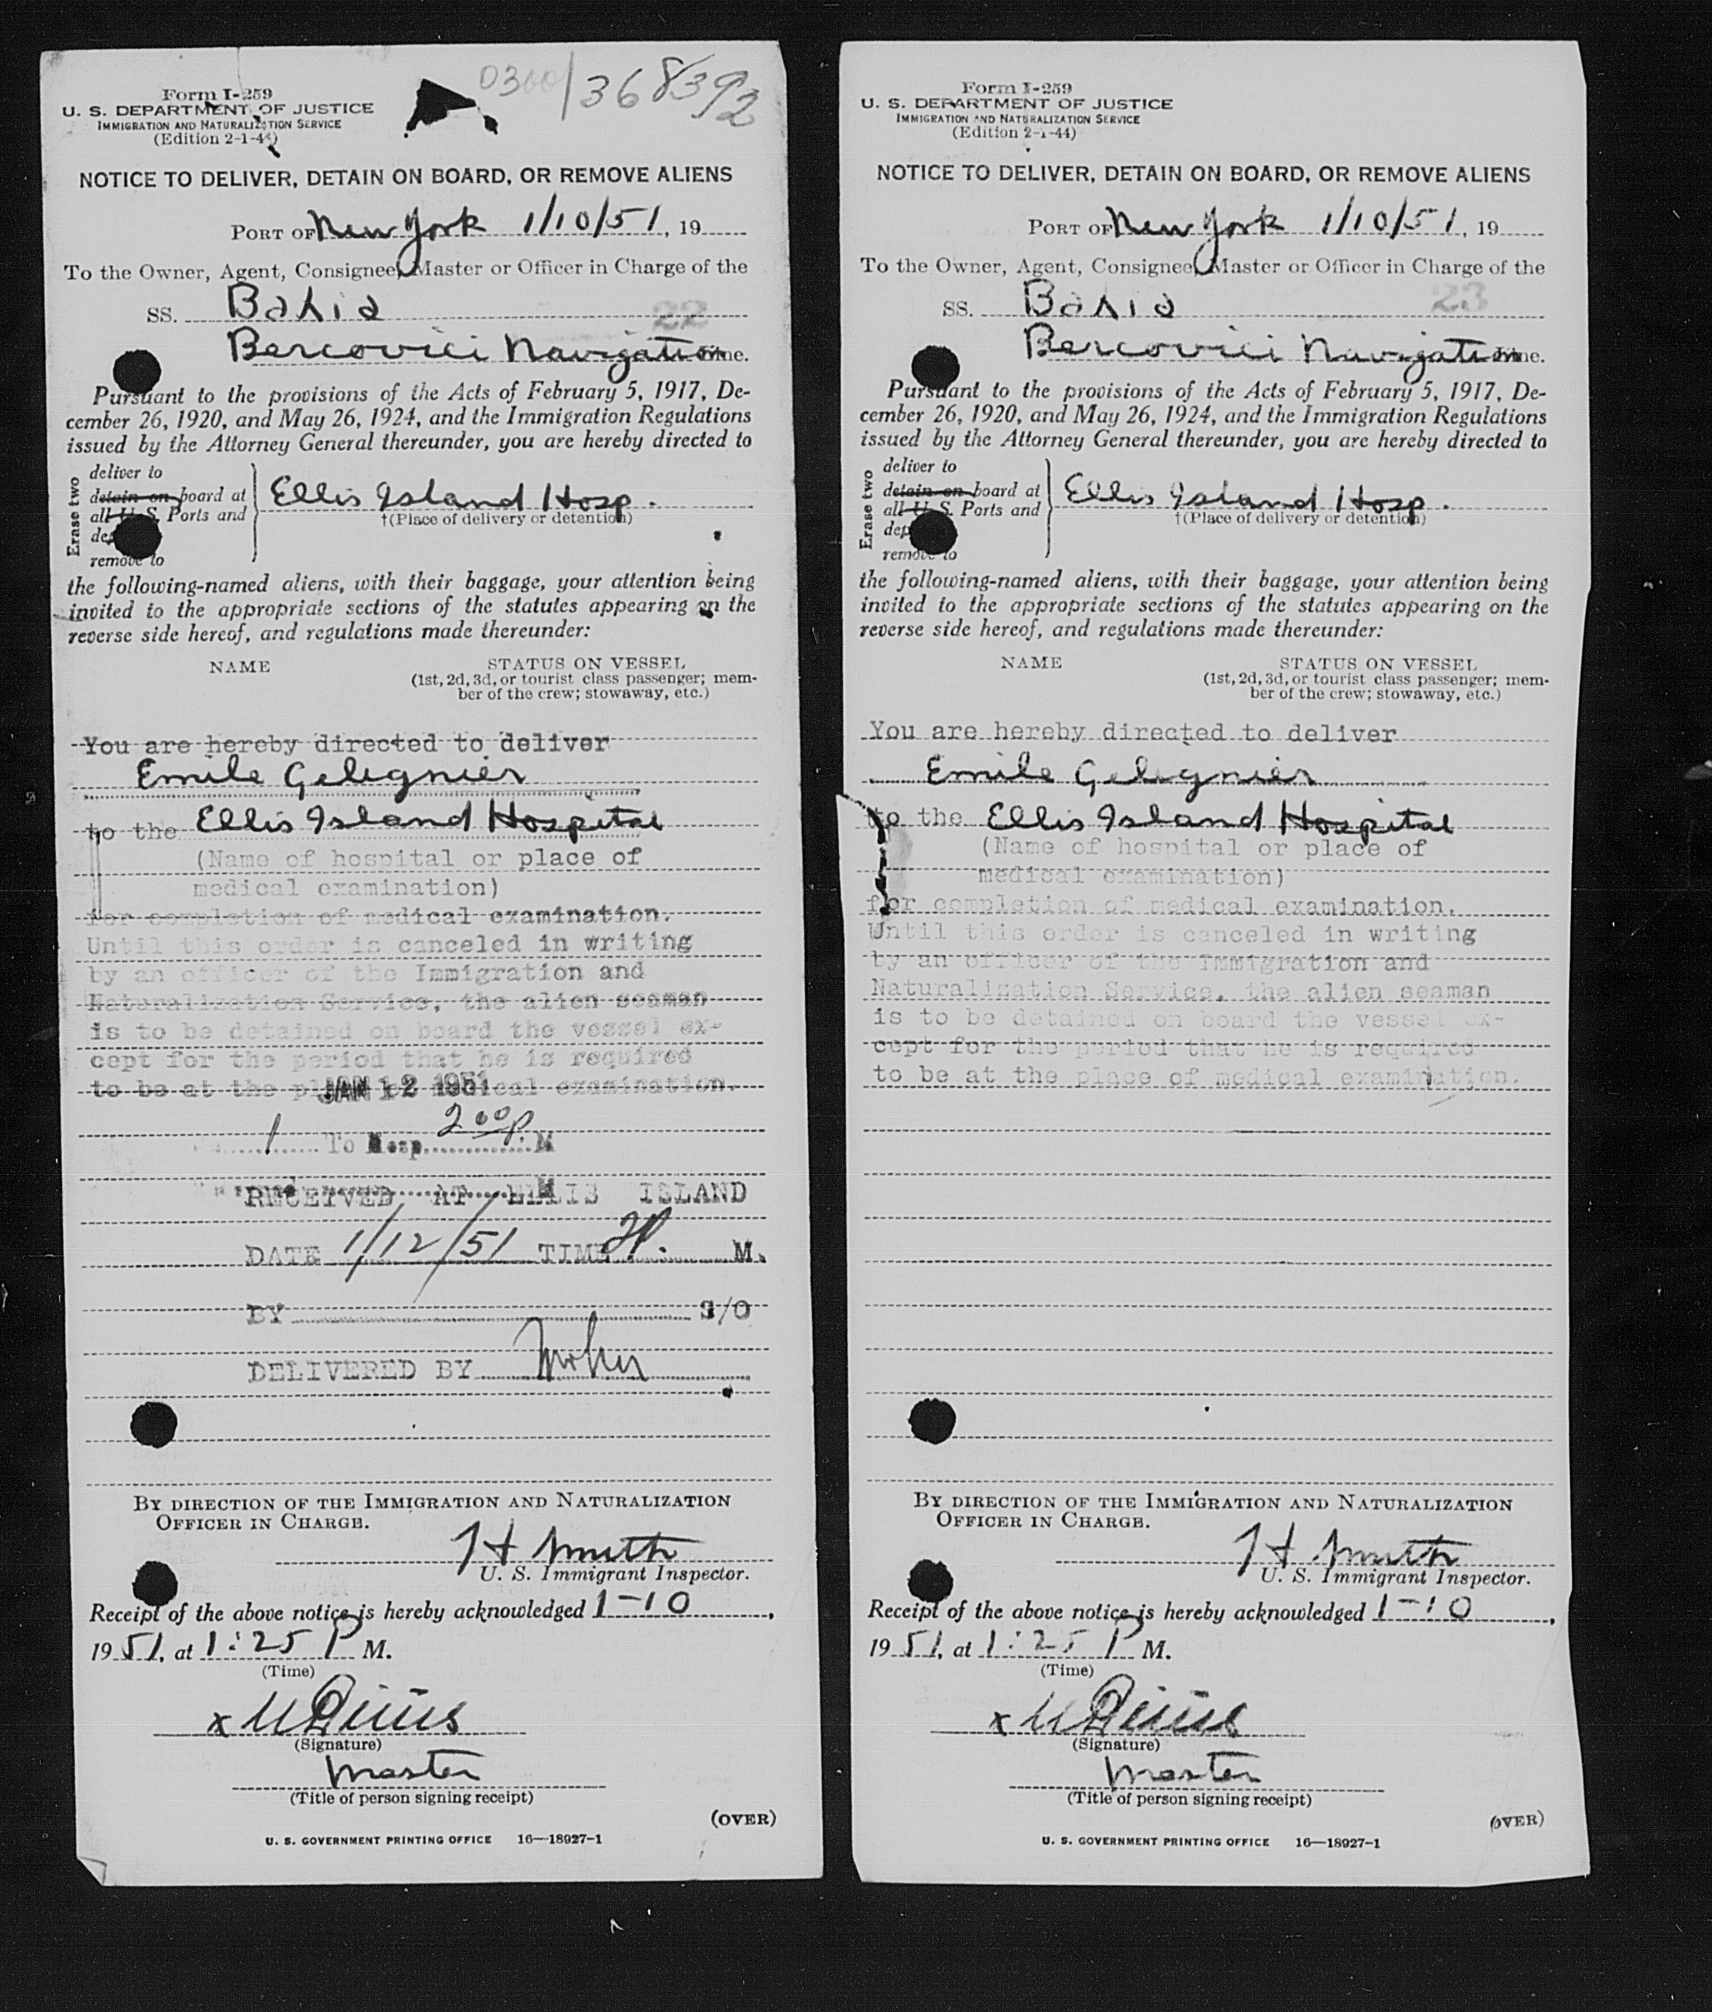 0300/368392
Form I-259
U. S. DEPARTMENT OF JUSTICE
IMMIGRATION AND NATURALIZATION SERVICE
(Edition 2-1-44)
NOTICE TO DELIVER, DETAIN ON BOARD, OR REMOVE ALIENS
PORT OF New York 1/10/51, 19
To the Owner, Agent, Consignee, Master or Officer in Charge of the
SS. Bahia 22
Bercovici Navigation Line.
Pursuant to the provisions of the Acts of February 5, 1917, De-
cember 26, 1920, and May 26, 1924, and the Immigration Regulations
issued by the Attorney General thereunder, you are hereby directed to
Erase two
deliver to
detain on board at
all U. S. Ports and
remove to
Ellis Island Hosp.
†(Place of delivery or detention)
the following-named aliens, with their baggage, your attention being
invited to the appropriate sections of the statutes appearing on the
reverse side hereof, and regulations made thereunder:
NAME STATUS ON VESSEL
(1st, 2d, 3d, or tourist class passenger; mem-
ber of the crew; stowaway, etc.)
You are hereby directed to deliver
Emile Gelegnier
to the Ellis Island Hospital
(Name of hospital or place of
medical examination)
for completion of medical examination.
Until this order is canceled in writing
by an officer of the Immigration and
Naturalization Service, the alien seaman
is to be detained on board the vessel ex-
cept for the period that he is required
to be at the place of medical examination.
JAN 12 1951
1 To Hosp. 2 00 P. M
RECEIVED AT ELLIS ISLAND
DATE 1/12/51 TIME 2P. M.
BY S/O
DELIVERED BY
BY DIRECTION OF THE IMMIGRATION AND NATURALIZATION
OFFICER IN CHARGE.
H Smith
U. S. Immigrant Inspector.
Receipt of the above notice is hereby acknowledged 1-10,
1951, at 1:25 P M.
(Time)
x
(Signature)
Master
(Title of person signing receipt)
(OVER)
U. S. GOVERNMENT PRINTING OFFICE 16—18927-1
Form I-259
U. S. DEPARTMENT OF JUSTICE
IMMIGRATION AND NATURALIZATION SERVICE
(Edition 2-1-44)
NOTICE TO DELIVER, DETAIN ON BOARD, OR REMOVE ALIENS
PORT OF New York 1/10/51, 19
To the Owner, Agent, Consignee, Master or Officer in Charge of the
SS. Bahia 23
Bercovici Navigation Line.
Pursuant to the provisions of the Acts of February 5, 1917, De-
cember 26, 1920, and May 26, 1924, and the Immigration Regulations
issued by the Attorney General thereunder, you are hereby directed to
Erase two
deliver to
detain on board at
all U. S. Ports and
remove to
Ellis Island Hosp.
†(Place of delivery or detention)
the following-named aliens, with their baggage, your attention being
invited to the appropriate sections of the statutes appearing on the
reverse side hereof, and regulations made thereunder:
NAME STATUS ON VESSEL
(1st, 2d, 3d, or tourist class passenger; mem-
ber of the crew; stowaway, etc.)
You are hereby directed to deliver
Emile Gelegnier
to the Ellis Island Hospital
(Name of hospital or place of
medical examination)
for completion of medical examination.
Until this order is canceled in writing
by an officer of the Immigration and
Naturalization Service, the alien seaman
is to be detained on board the vessel ex-
cept for the period that he is required
to be at the place of medical examination.
BY DIRECTION OF THE IMMIGRATION AND NATURALIZATION
OFFICER IN CHARGE.
H Smith
U. S. Immigrant Inspector.
Receipt of the above notice is hereby acknowledged 1-10,
1951, at 1:25 P M.
(Time)
x
(Signature)
Master
(Title of person signing receipt)
(OVER)
U. S. GOVERNMENT PRINTING OFFICE 16—18927-1